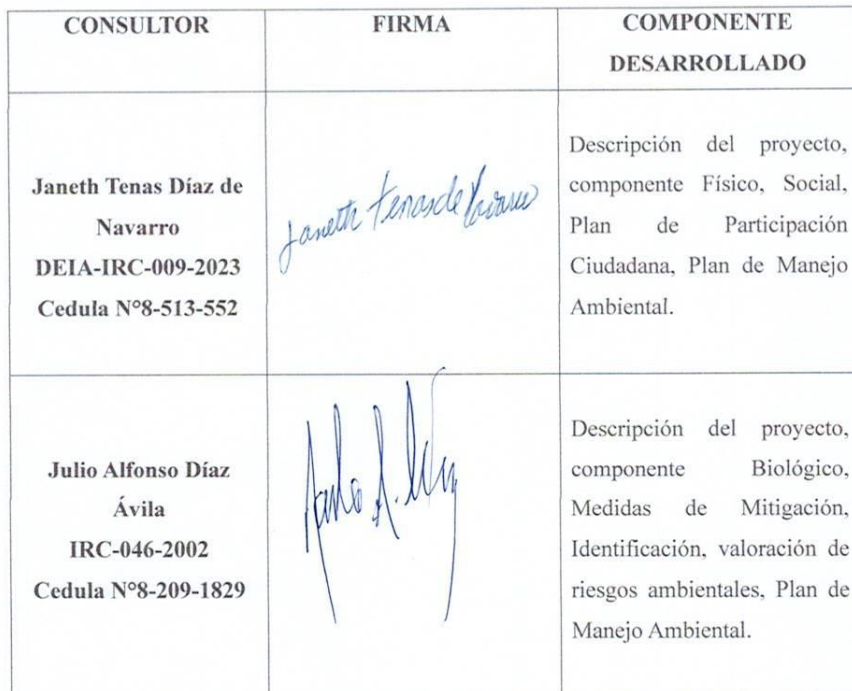 CONSULTOR
FIRMA
COMPONENTE
DESARROLLADO
Janeth Tenas Díaz de
Navarro
DEIA-IRC-009-2023
Cedula N°8-513-552
Janeth Tenas de Navarro
Descripción del proyecto,
componente Físico, Social,
Plan de Participación
Ciudadana, Plan de Manejo
Ambiental.
Julio Alfonso Díaz
Ávila
IRC-046-2002
Cedula N°8-209-1829
Descripción del proyecto,
componente Biológico,
Medidas de Mitigación,
Identificación, valoración de
riesgos ambientales, Plan de
Manejo Ambiental.